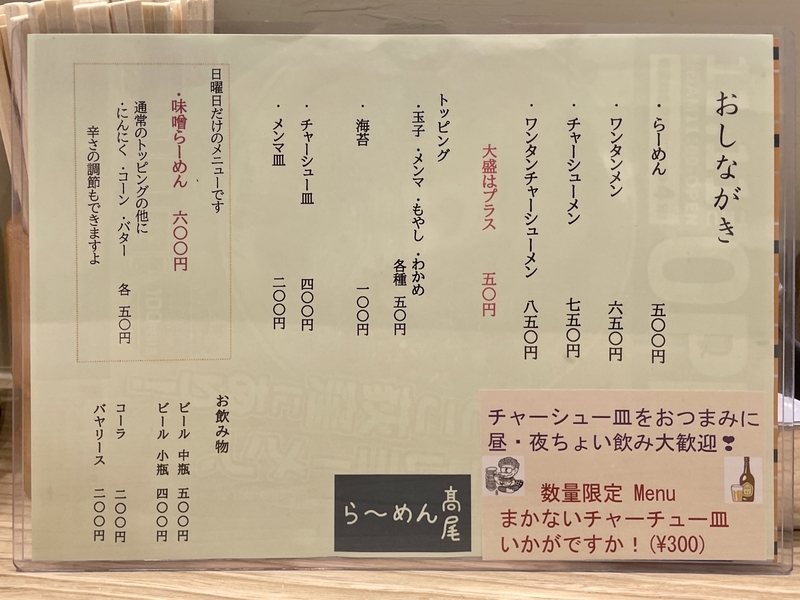 おしながき
・らーめん 五〇〇円
・ワンタンメン 六五〇円
・チャーシューメン 七五〇円
・ワンタンチャーシューメン 八五〇円
大盛はプラス 五〇円
トッピング
・玉子 ・メンマ ・もやし ・わかめ
各種 五〇円
・海苔 一〇〇円
・チャーシュー皿 四〇〇円
・メンマ皿 二〇〇円
日曜日だけのメニューです
・味噌らーめん 六〇〇円
通常のトッピングの他に
・にんにく ・コーン ・バター 各 五〇円
辛さの調節もできますよ
お飲み物
ビール 中瓶 五〇〇円
ビール 小瓶 四〇〇円
コーラ 二〇〇円
バヤリース 二〇〇円
らーめん 髙尾
チャーシュー皿をおつまみに
昼・夜ちょい飲み大歓迎❣
数量限定 Menu
まかないチャーチュー皿
いかがですか！(¥300)